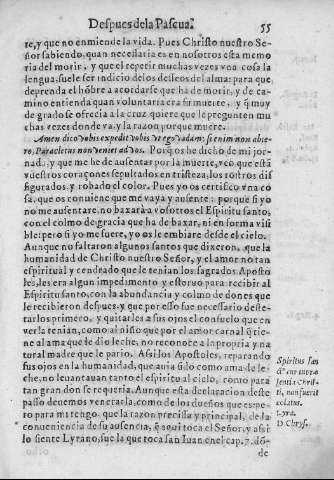 Despues de la Pascua. 55
te, y que no enmiende la vida. Pues Christo nuestro Se-
ñor sabiendo, quan necessaria es en nosotros esta memo
ria del morir, y que el repetir muchas vezes vna cosa la
lengua, suele ser indicio de los desseos del alma: para que,
deprenda el hôbre a acordarse que ha de morir, y de ca-
mino entienda quan voluntaria era su muerte, y q̃ muy
de grado se ofrecia a la cruz quiere que le pregunten mu
chas vezes donde va, y la razon porque muere.
Amen dico vobis expedit vobis vt ego vadam: si enim non abie-
ro, Paracletus non veniet ad vos. Porq̃ os he dicho de mi jor-
nada, y que me he de ausentar por la muerte, veo que està
vuestros coraçones sepultados en tristeza, los rostros dis
figurados, y robado el color. Pues yo os certifico vna co
sa, que os conuiene que me vaya y ausente: porque si yo
no me ausentare, no baxarà a vosotros el Espiritu santo,
con el colmo de gracia que ha de baxar, ni en forma visi
ble: pero si yo me fuere, yo os le embiare desde el cielo.
Aunque no faltaron algunos santos que dixeron, que la
humanidad de Christo nuestro Señor, y el amor no tan
espiritual y cendrado que le tenian los sagrados Aposto
les, les era algun impedimento y estoruo para recibir al
Espiritu santo, con la abundancia y colmo de dones que
le recibieron despues, y que por esso fue necessario deste-
tarlos primero, y quitarles a sus ojos el consuelo que en
verla tenian, como al niño que por el amor carnal q̃ tie-
ne al ama que le dio leche, no reconoce a la propria y na
tural madre que le pario. Assi los Apostoles, reparando
sus ojos en la humanidad, que auia sido como ama de le-
che, no leuantauan tanto el espiritu al cielo, como para
tan gran don se requeria. Aunque esta declaracion deste
passo deuemos venerarla, como de los dueños que espe-
ro para mi tengo, que la razon precissa y principal, de la
conueniencia de su ausencia, q̃ aqui toca el Señor, y assi
lo siente Lyrano, fue la que toca san Iuan en el cap. 7. dô-
de
Spiritus san
ctꝰ cur inpræ
sentia Chris-
ti, non fuerit
collatus.
Lyra.
D. Chrys.